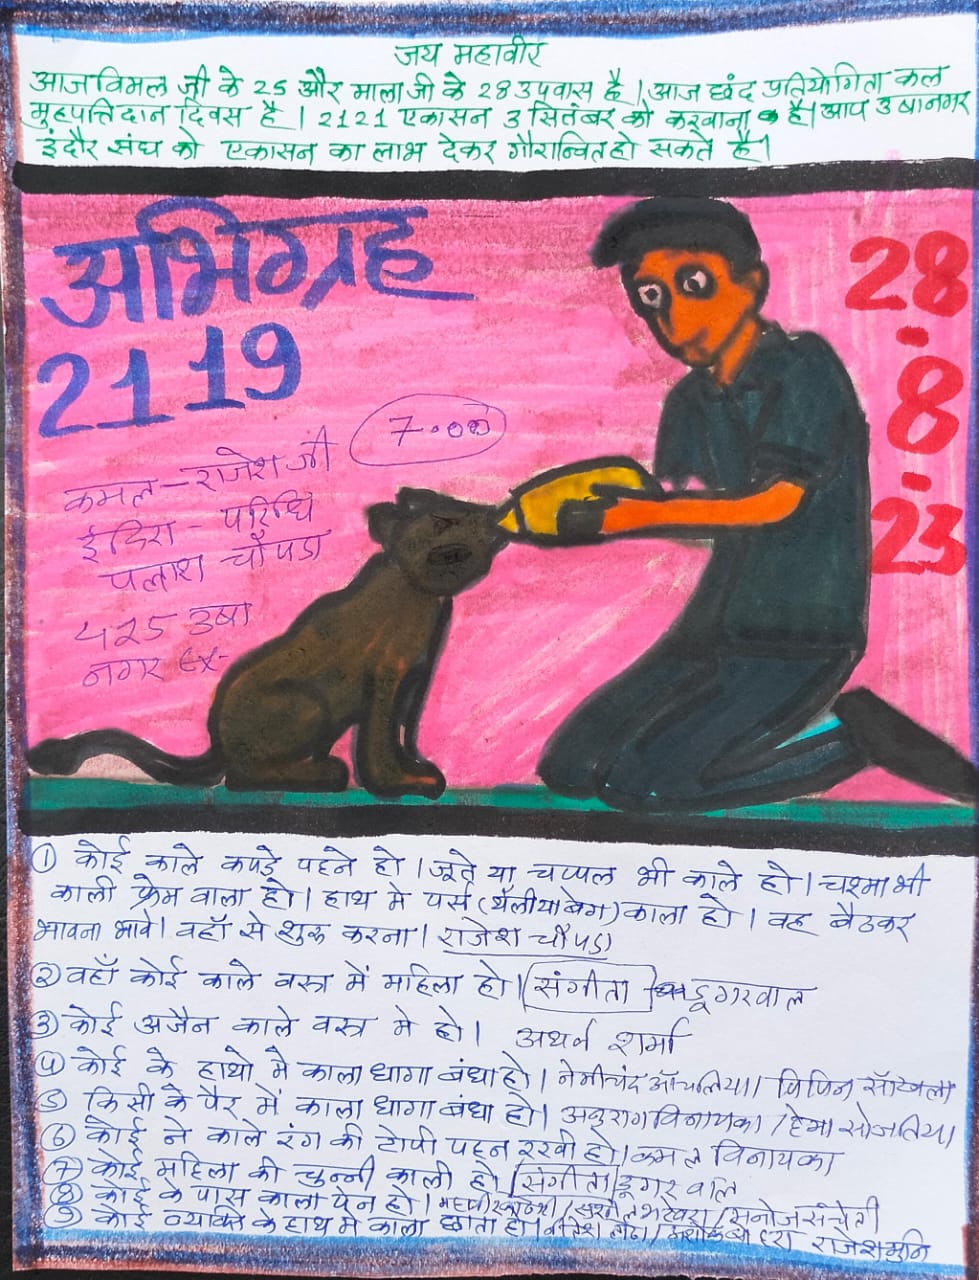 जय महावीर
आज विमल जी के 25 और माला जी के 28 उपवास है। आज छंद प्रतियोगिता कल
मुहपत्ति दान दिवस है। 2121 एकासन 3 सितंबर को करवाना है। आप उषानगर
इंदौर संघ को एकासन का लाभ देकर गौरान्वित हो सकते है।
अभिग्रह
2119
28-8-23
7.00
कमल - राजेश जी
इंदिरा - परिधि
पलाश चौपडा
425 उषा
नगर Ex-
① कोई काले कपड़े पहने हो। जूते या चप्पल भी काले हो। चश्मा भी
काली फ्रेम वाला हो। हाथ मे पर्स (थैली या बेग) काला हो। वह बैठकर
भावना भावे। वहाँ से शुरू करना। राजेश चौपडा
② वहाँ कोई काले वस्त्र में महिला हो। संगीता डूगरवाल
③ कोई अजैन काले वस्त्र मे हो। अथर्व शर्मा
④ कोई के हाथो मे काला धागा बंधा हो। नेमीचंद आँचलिया। विपिन साँखला
⑤ किसी के पैर में काला धागा बंधा हो। अनुराग विनायका / हेमा सोजतिया
⑥ कोई ने काले रंग की टोपी पहन रखी हो। कमल विनायका
⑦ कोई महिला की चुन्नी काली हो। संगीता डूगरवाल
⑧ कोई के पास काला पेन हो। / मनोज संचेती
⑨ कोई व्यक्ति के हाथ मे काला छाता हो। राजेश मुनि